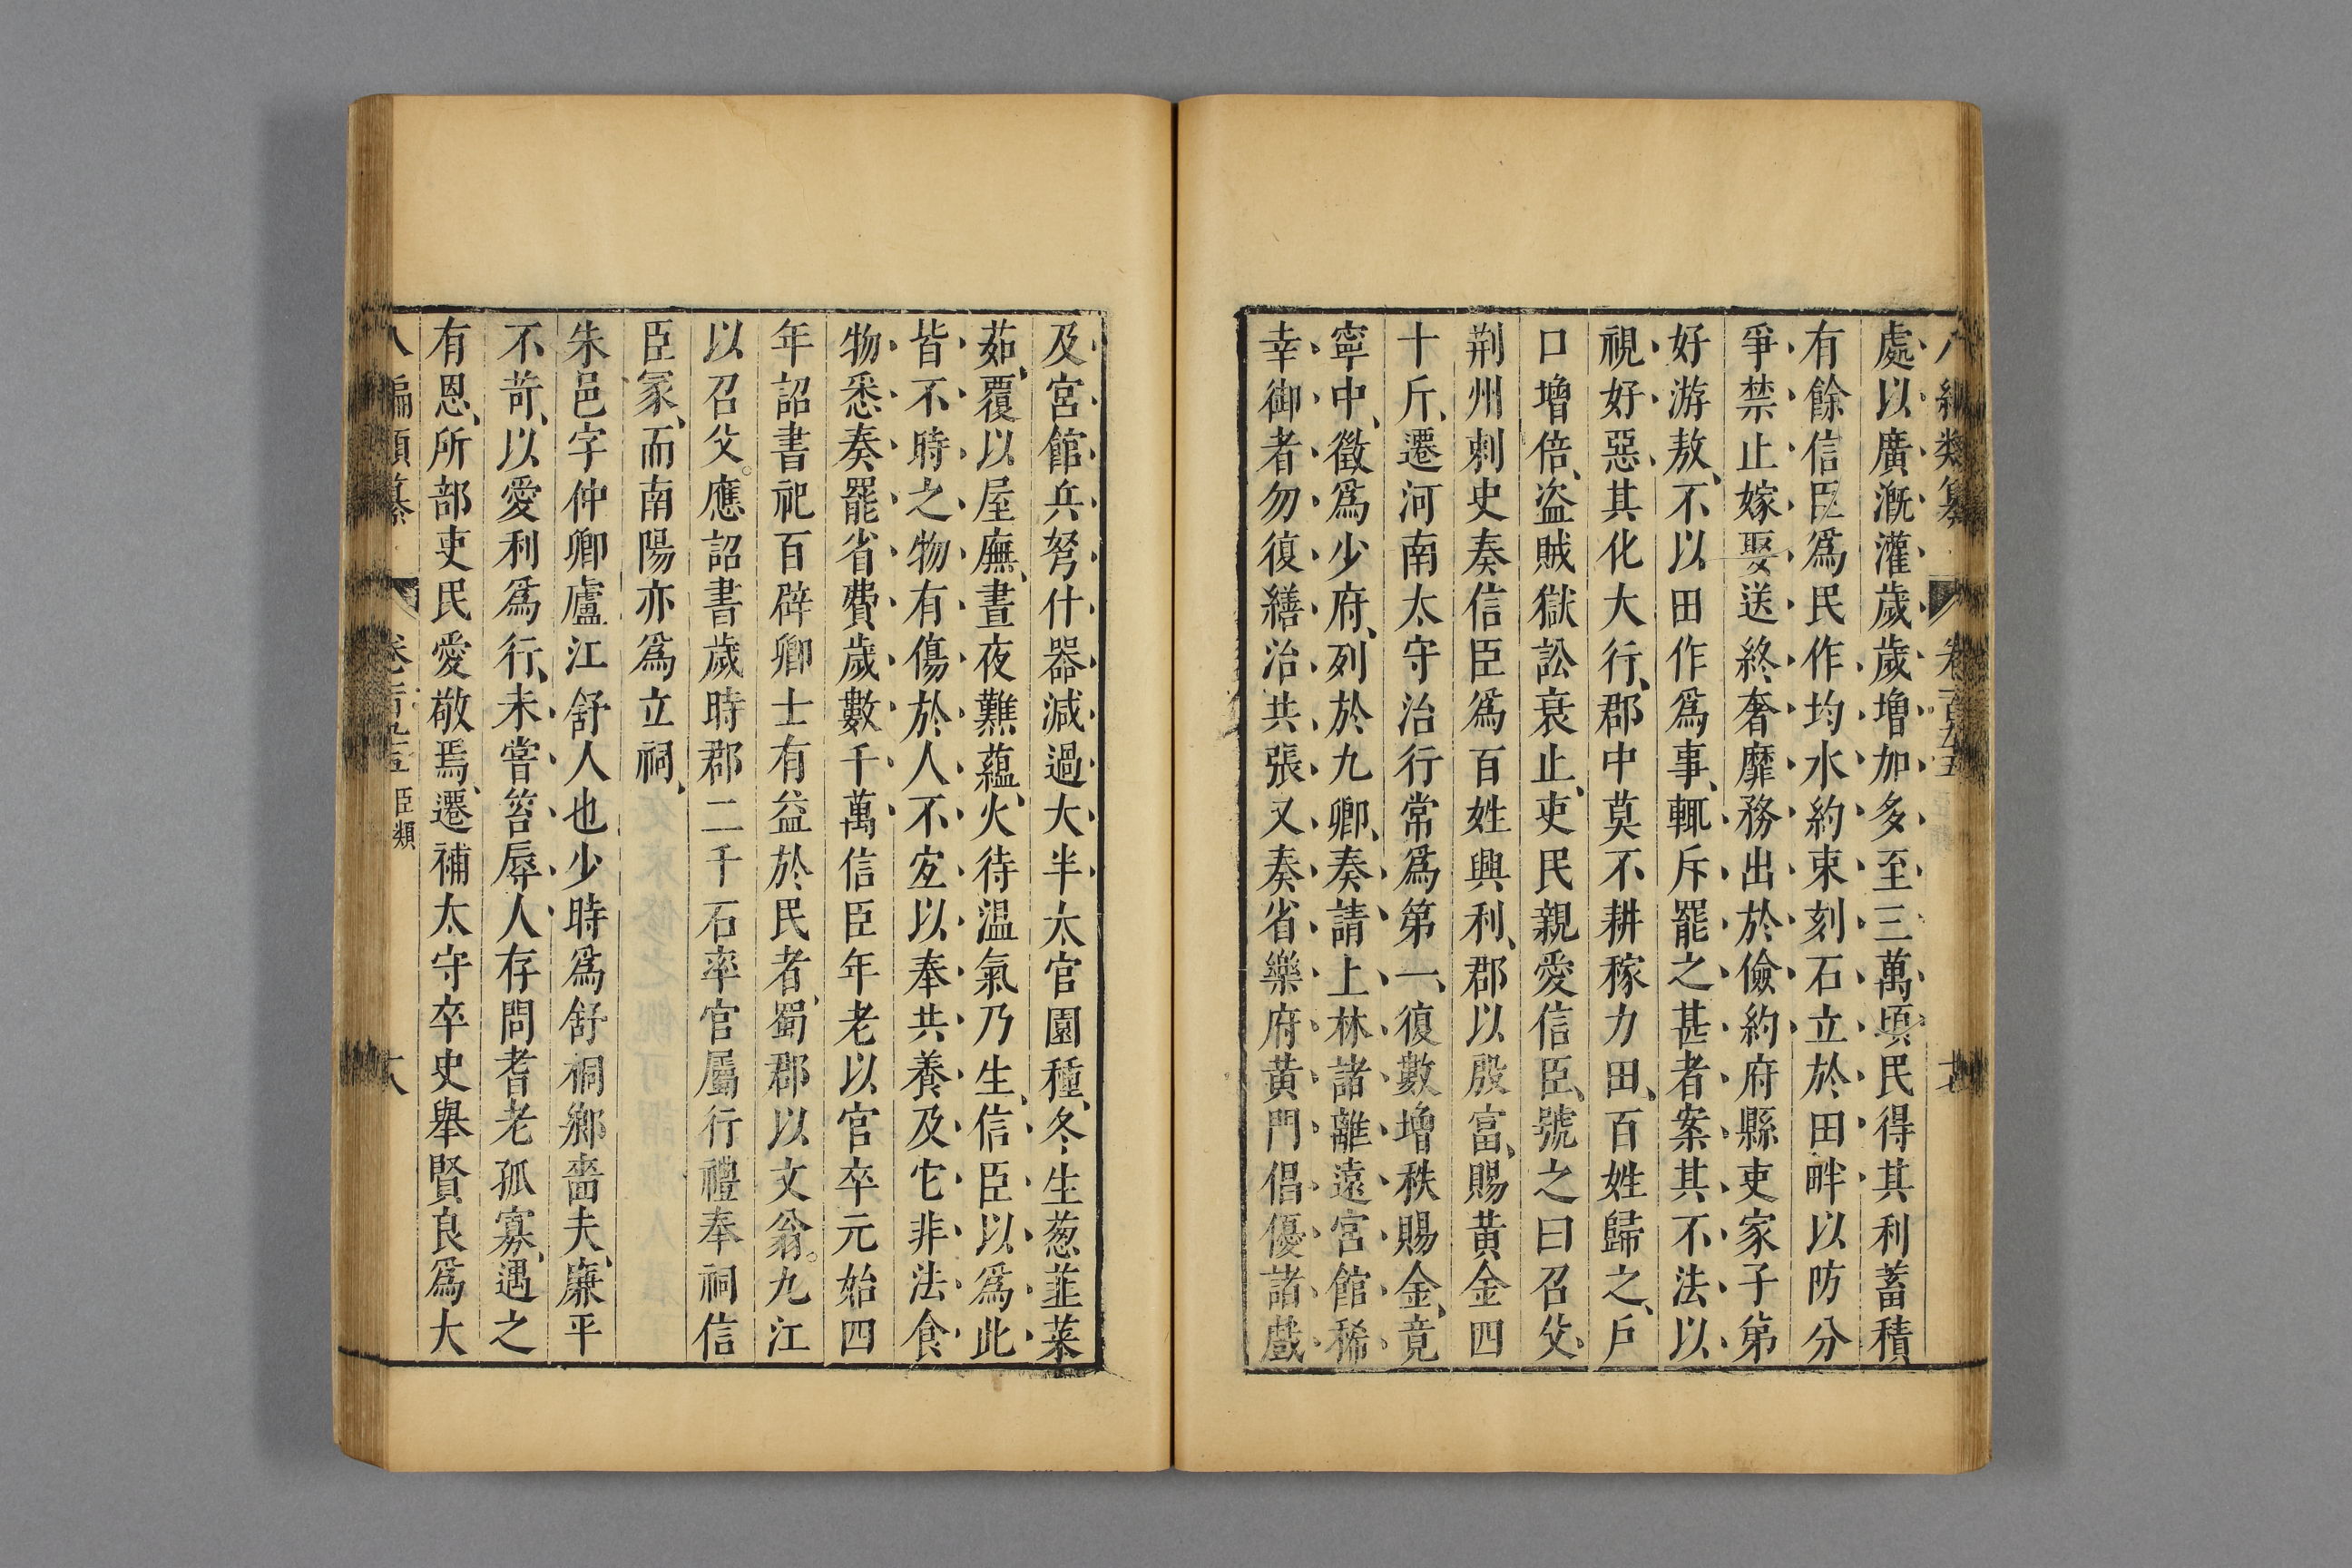 處以廣漑灌歲歲增加多至三萬頃民得其利蓄積
有餘信臣爲民作均水約束刻石立於田畔以防分
爭禁止嫁娶送終奢靡務出於儉約府縣吏家子弟
好游敖不以田作爲事輒斥罷之甚者案其不法以
視好惡其化大行郡中莫不耕稼力田百姓歸之戶
口增倍盜賊獄訟衰止吏民親愛信臣號之曰召父
荆州刺史奏信臣爲百姓興利郡以殷富賜黃金四
十斤遷河南太守治行常爲第一復數增秩賜金竟
寧中徵爲少府列於九卿奏請上林諸離遠宮館稀
幸御者勿復繕治共張又奏省樂府黃門倡優諸戲
及宮館兵弩什器減過大半太官園種冬生葱韮菜
茹覆以屋廡晝夜難蘊火待温氣乃生信臣以爲此
皆不時之物有傷於人不宐以奉共養及它非法食
物悉奏罷省費歲數千萬信臣年老以官卒元始四
年詔書祀百辟卿士有益於民者蜀郡以文翁。九江
以召父。應詔書歲時郡二千石率官屬行禮奉祠信
臣冢而南陽亦爲立祠
朱邑字仲卿廬江舒人也少時爲舒桐鄉嗇夫廉平
不苛以愛利爲行未嘗笞辱人存問耆老孤寡遇之
有恩所部吏民愛敬焉遷補太守卒史舉賢良爲大
臣類